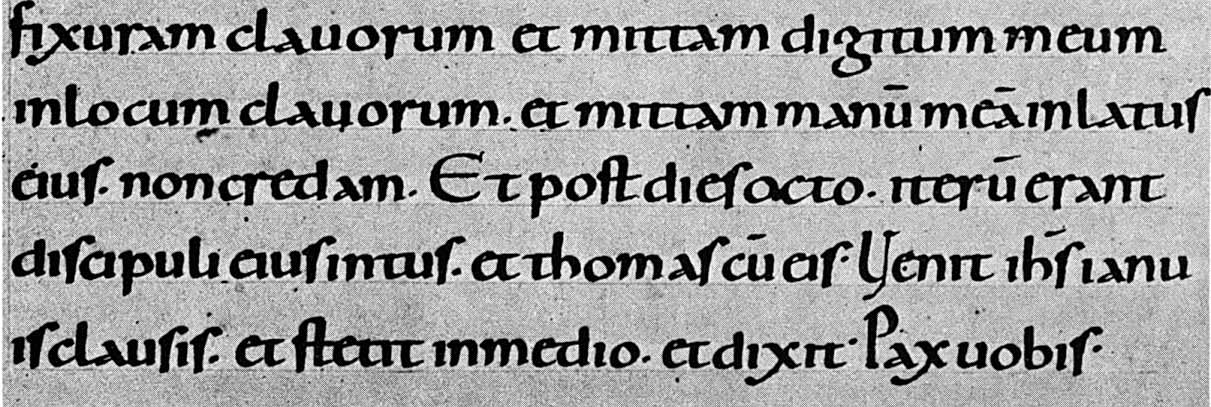 fixuram clauorum et mittam digitum meum
inlocum clauorum. et mittam manū meā inlatus
eius. non credam. Et post dies octo. iterū erant
discipuli eius intus. et thomas cū eis. Venit ihs̄ ianu
is clausis. et stetit inmedio. et dixit. Pax uobis.